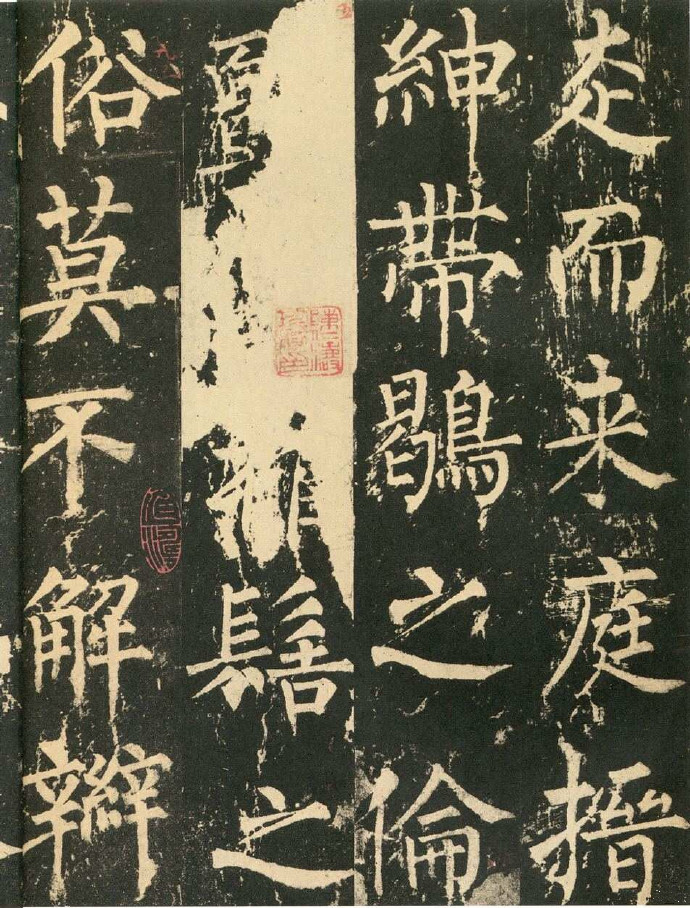 走而来庭搢
紳帶鶡之倫
椎髻之
俗莫不解辮